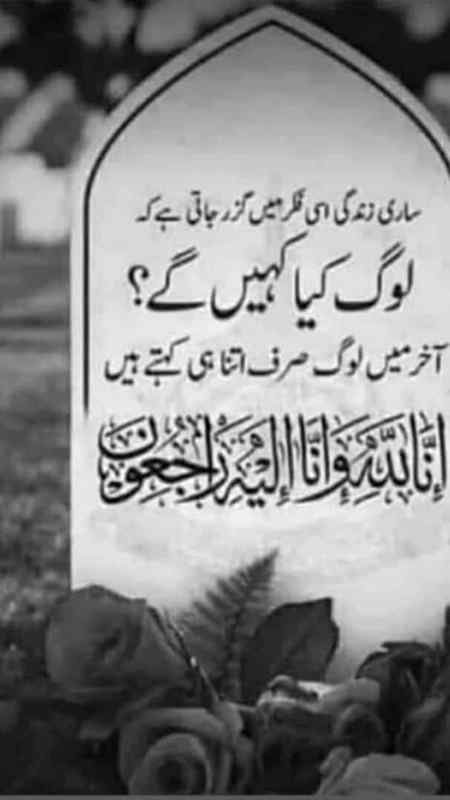 ساری زندگی اسی فکر میں گزر جاتی ہے کہ
لوگ کیا کہیں گے؟
آخر میں لوگ صرف اتنا ہی کہتے ہیں
إِنَّا لِلَّٰهِ وَإِنَّا إِلَيْهِ رَاجِعُونَ